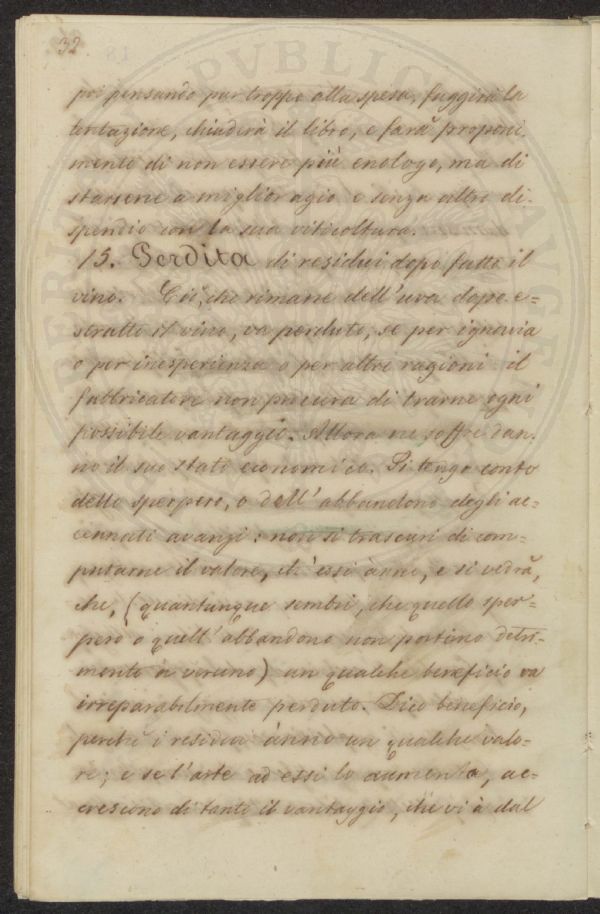 32
poi pensando pur troppo alla spesa, fuggirà la
tentazione, chiuderà il libro, e farà proponi,
mento di non essere più enologo, ma di
starsene a miglior agio e senza altro di-
spendio con la sua viticoltura.
15. Perdita di residui dopo fatto il
vino. Ciò, che rimane dell'uva dopo e=
stratto il vino, va perduto, se per ignavia
o per inesperienza o per altre ragioni il
fabbricatore non procura di trarne ogni
possibile vantaggio. Allora ne soffre dan-
no il suo stato economico. Si tenga conto
dello sperpero, o dell'abbandono degli ac=
cennati avanzi: non si trascuri di com=
putarne il valore, ch'essi ànno, e si vedrà,
che, (quantunque sembri, che quello sper=
pero o quell'abbandono non portino detri=
mento a veruno) un qualche beneficio va
irreparabilmente perduto. Dico beneficio,
perchè i residui ànno un qualche valo=
re; e se l'arte ad essi lo aumenta, ac=
crescono di tanto il vantaggio, che vi à dal
PVBLIC